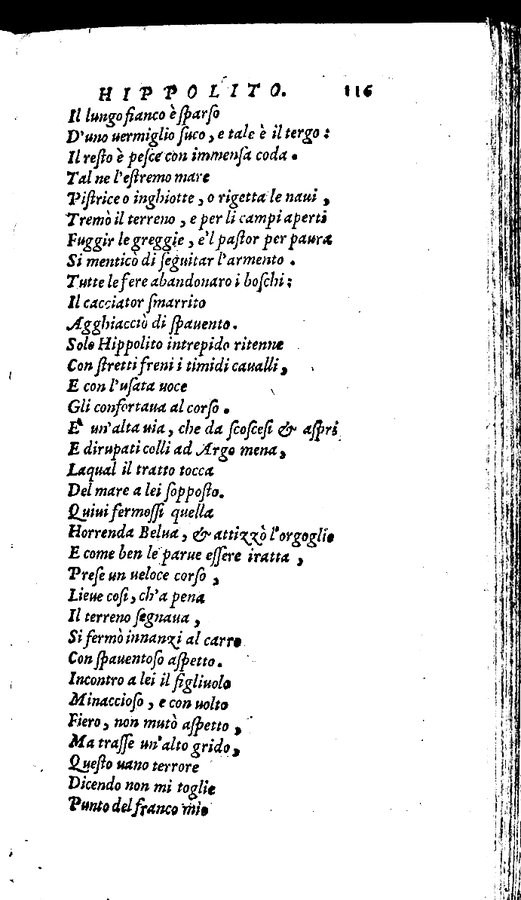 HIPPOLITO. 116
Il lungo fianco è ſparſo
D'uno uermiglio ſuco, e tale è il tergo:
Il reſto è peſce con immenſa coda.
Tal ne l'eſtremo mare
Piſtrice o inghiotte, o rigetta le naui,
Tremò il terreno, e per li campi aperti
Fuggir le greggie, e'l paſtor per paura
Si menticò di ſeguitar l'armento.
Tutte le fere abandonaro i boſchi;
Il cacciator ſmarrito
Agghiacciò di ſpauento.
Solo Hippolito intrepido ritenne
Con ſtretti freni i timidi caualli,
E con l'uſata uoce
Gli confortaua al corſo.
E' un'alta uia, che da ſcoſceſi & aſpri
E dirupati colli ad Argo mena,
Laqual il tratto tocca
Del mare a lei ſoppoſto.
Quiui fermoſſi quella
Horrenda Belua, & attizzò l'orgoglio
E come ben le parue eſſere iratta,
Preſe un ueloce corſo,
Lieue coſi, ch'a pena
Il terreno ſegnaua,
Si fermò innanzi al carro
Con ſpauentoſo aſpetto.
Incontro a lei il figliuolo
Minaccioſo, e con uolto
Fiero, non mutò aſpetto,
Ma traſſe un'alto grido,
Queſto uano terrore
Dicendo non mi toglie
Punto del franco mio